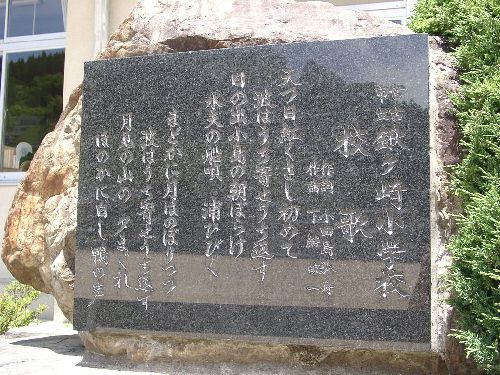 銀ヶ崎小学校
校歌
作詞 小田島
作曲 下
天つ日紅くさし初めて
波はうち寄せうち返す
日の出小島の朝ぼらけ
水夫の船唄 浦ひびく
まどかに月はのぼりつつ
波はうち寄せうち返す
月見の山の夕まぐれ
ほのかに白し鴎の声